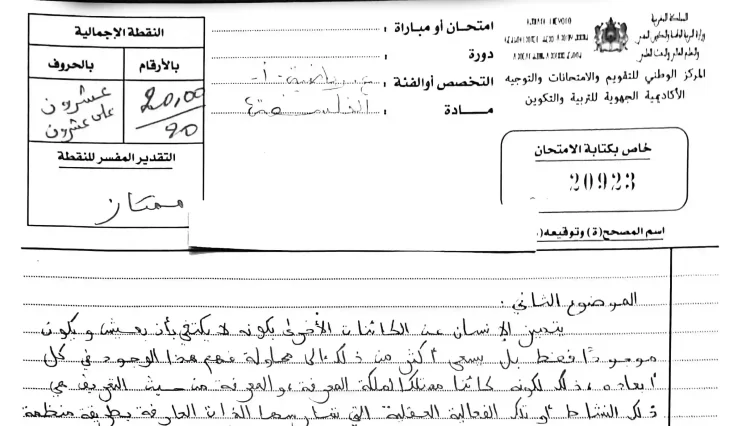 المملكة المغربية
وزارة التربية الوطنية والتكوين المهني
والتعليم العالي والبحث العلمي
المركز الوطني للتقويم والامتحانات والتوجيه
الأكاديمية الجهوية للتربية والتكوين
امتحان أو مباراة :
دورة :
التخصص أوالفئة : ع رياضية - أ -
مادة : الفلسفة
النقطة الإجمالية
بالأرقام
بالحروف
20,00
20
عشرون
على عشرون
التقدير المفسر للنقطة
ممتاز
خاص بكتابة الامتحان
20923
اسم المصحح(ة) وتوقيعه(
الموضوع الثاني :
يتميز الإنسان عن الكائنات الأخرى بكونه لا يكتفي بأن يعيش و يكون
موجودا فقط بل يسعى أكثر من ذلك إلى محاولة فهم هذا الوجود في كل
أبعاده ، ذلك لكونه كائنا ممتلكا لملكة المعرفة ، والمعرفة من حيث التعريف هي
ذلك النشاط أو تلك الفعالية العقلية التي تمارسها الذات العارفة بطريقة منظمة